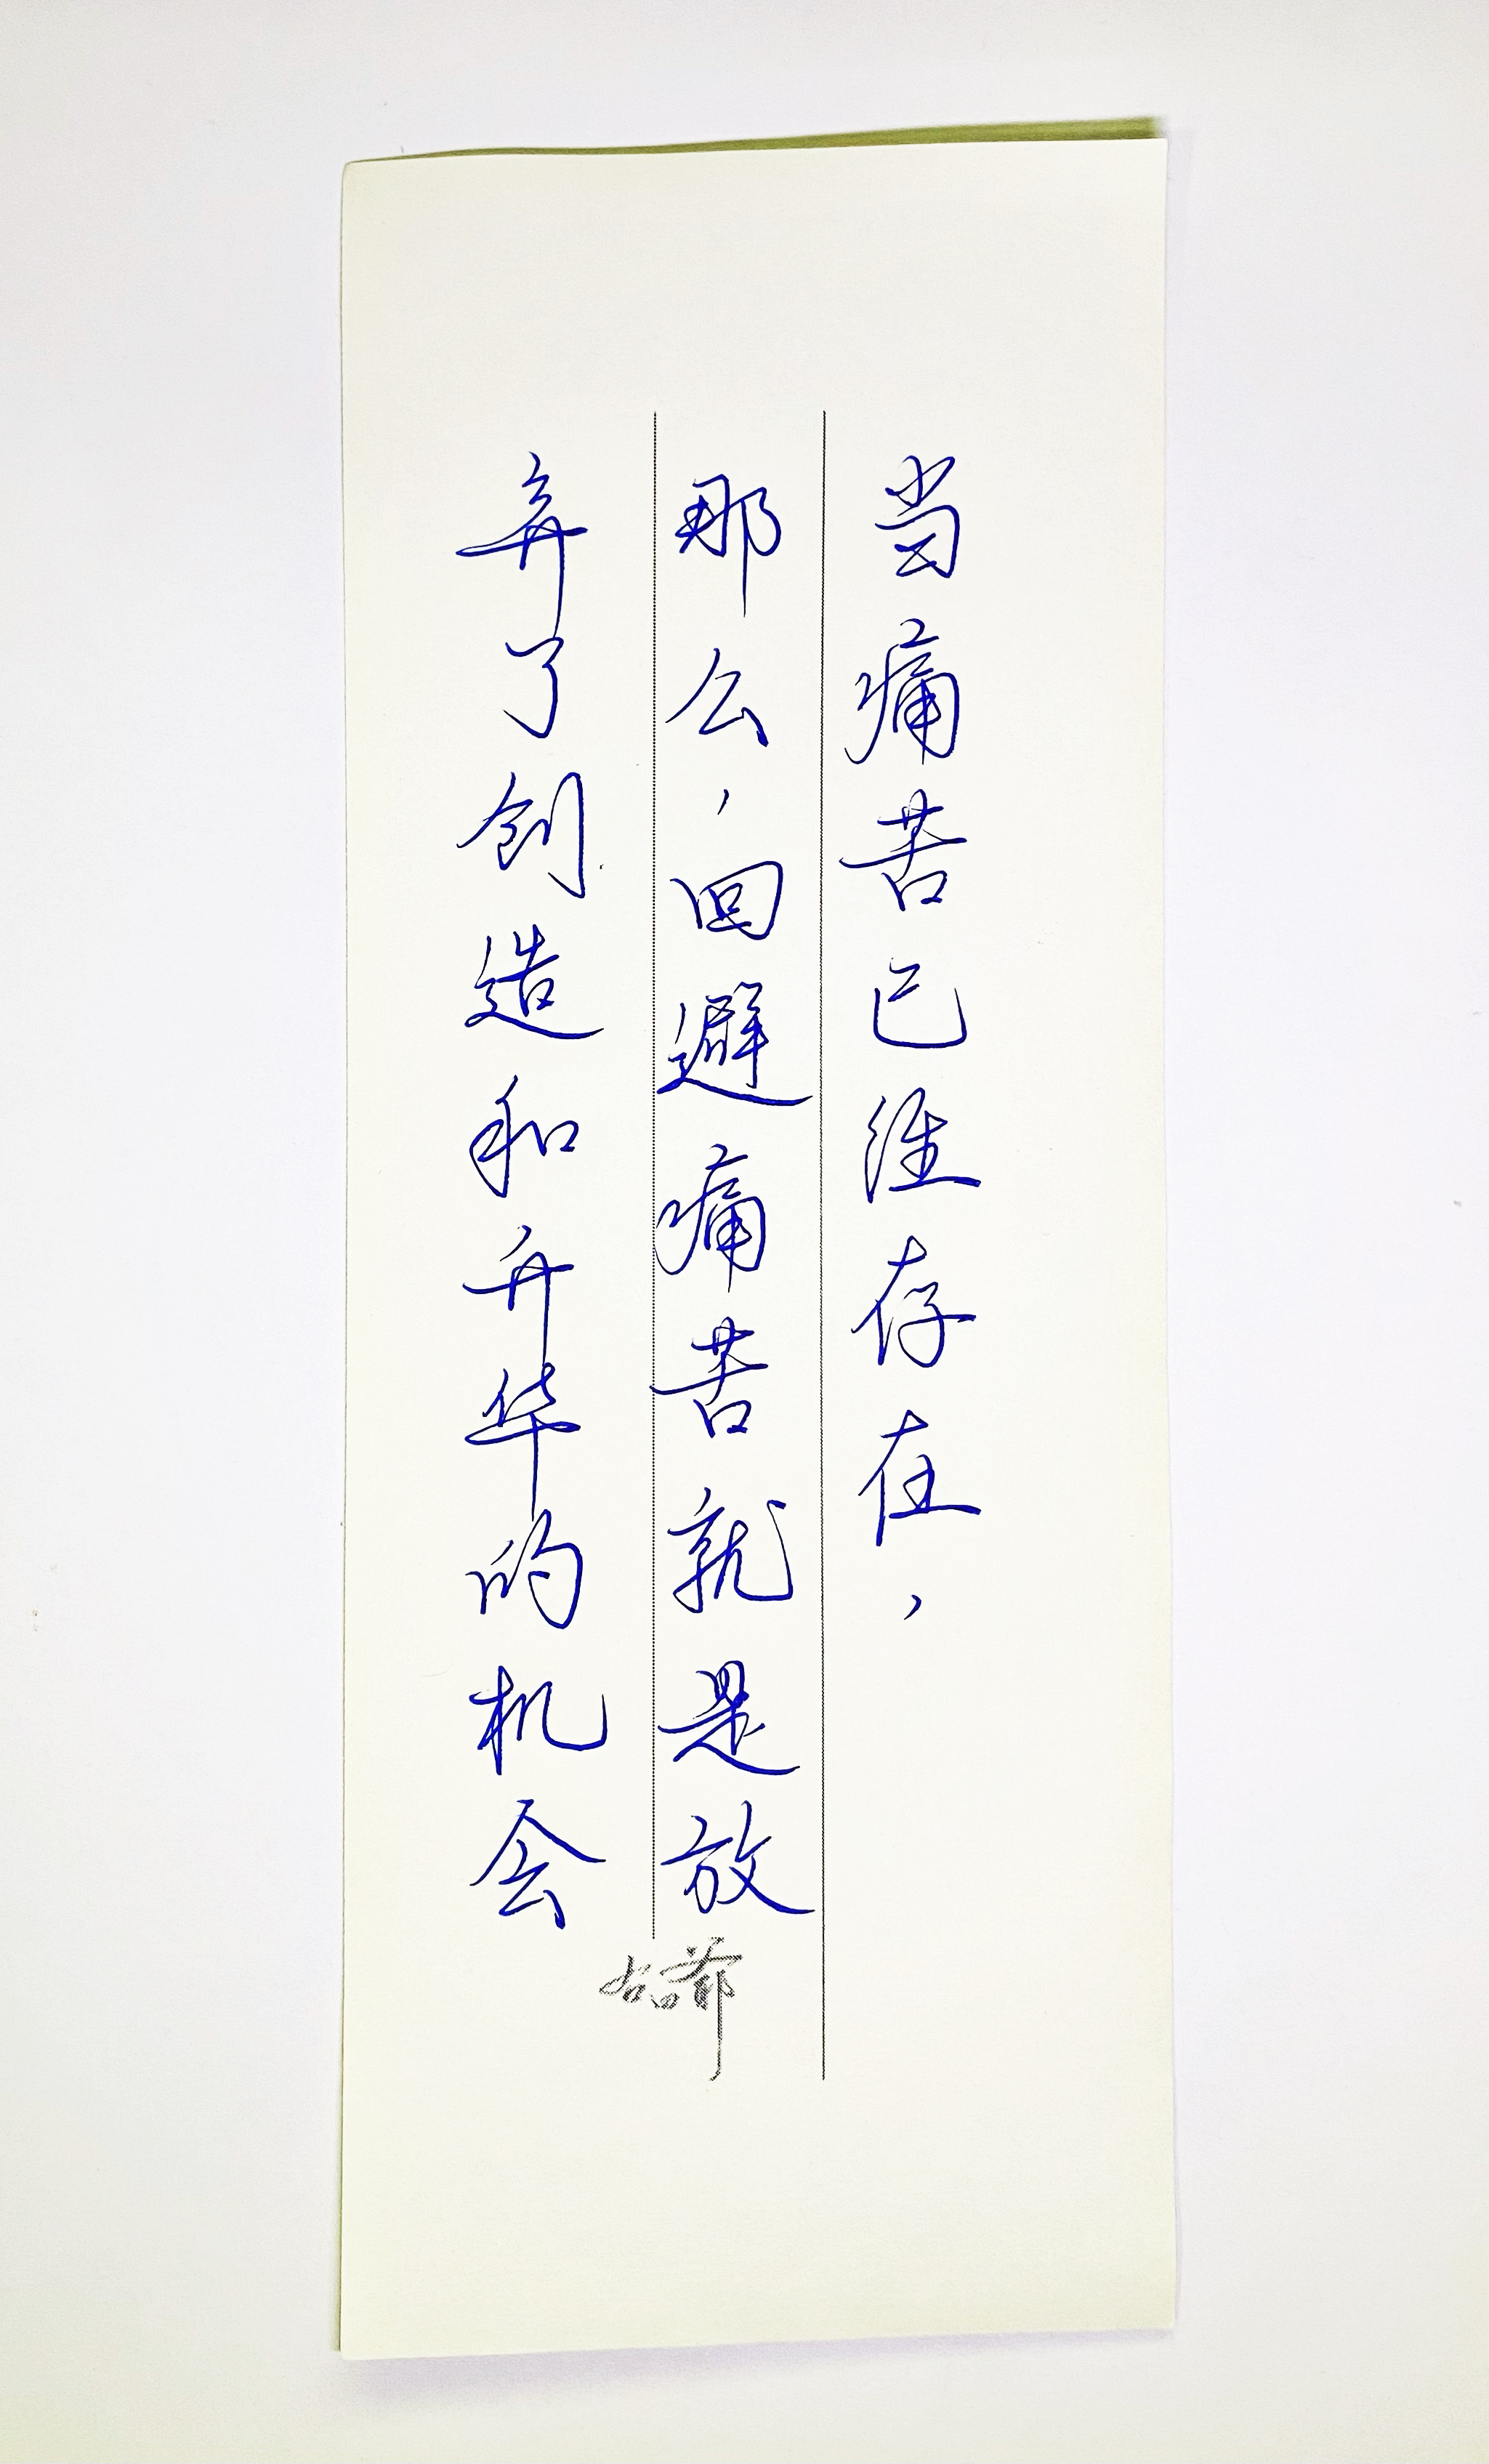 当痛苦已经存在，
那么，回避痛苦就是放
弃了创造和升华的机会